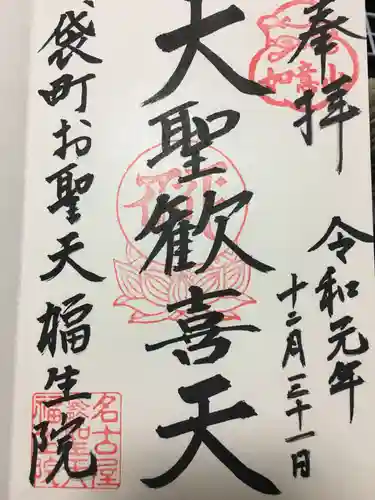 奉拝
令和元年
十二月三十一日
如意山
大聖歓喜天
袋町お聖天
福生院
名古屋